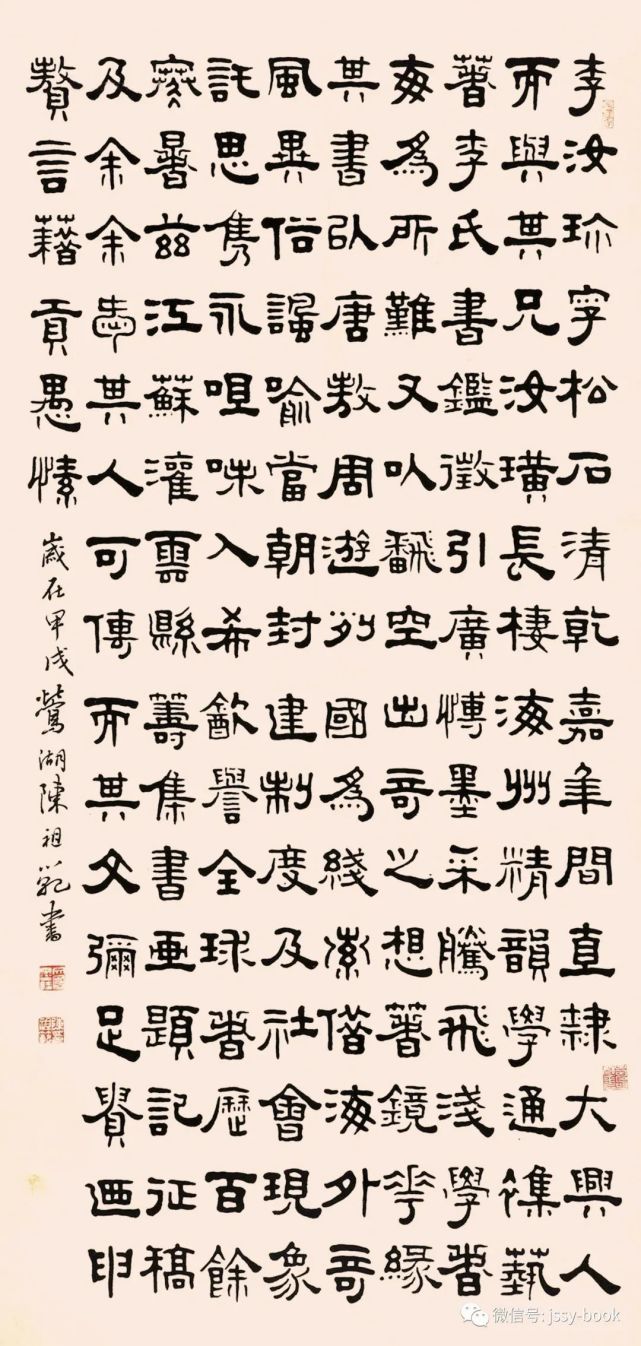 李汝珍字松石清乾嘉年間直隸大興人
而與其兄汝璜長棲海州精韻學通襍藝
著李氏書鑑徵引廣愽墨采騰飛淺學者
每為所難又以飜空出奇之想著鏡花緣
其書以唐敖周遊列國為綫索借海外奇
風異俗諷喻當朝封建制度及社會現象
託思雋永咀味入希譽全球者歷百餘
寒暑茲江蘇灌雲縣籌集書畫題記征稿
及余余其人可傳而其文彌足貴迺申
贅言藉貢愚愫
歲在甲戌鶯湖陳祖範書
微信号: jssy-book